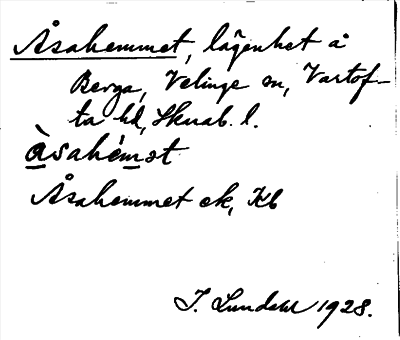 Åsahemmet, lägenhet å
Berga, Velinge sn, Vartof-
ta hd, Skarab. l.
àsahémət
Åsahemmet ek, Kb
I. Lundahl 1928.